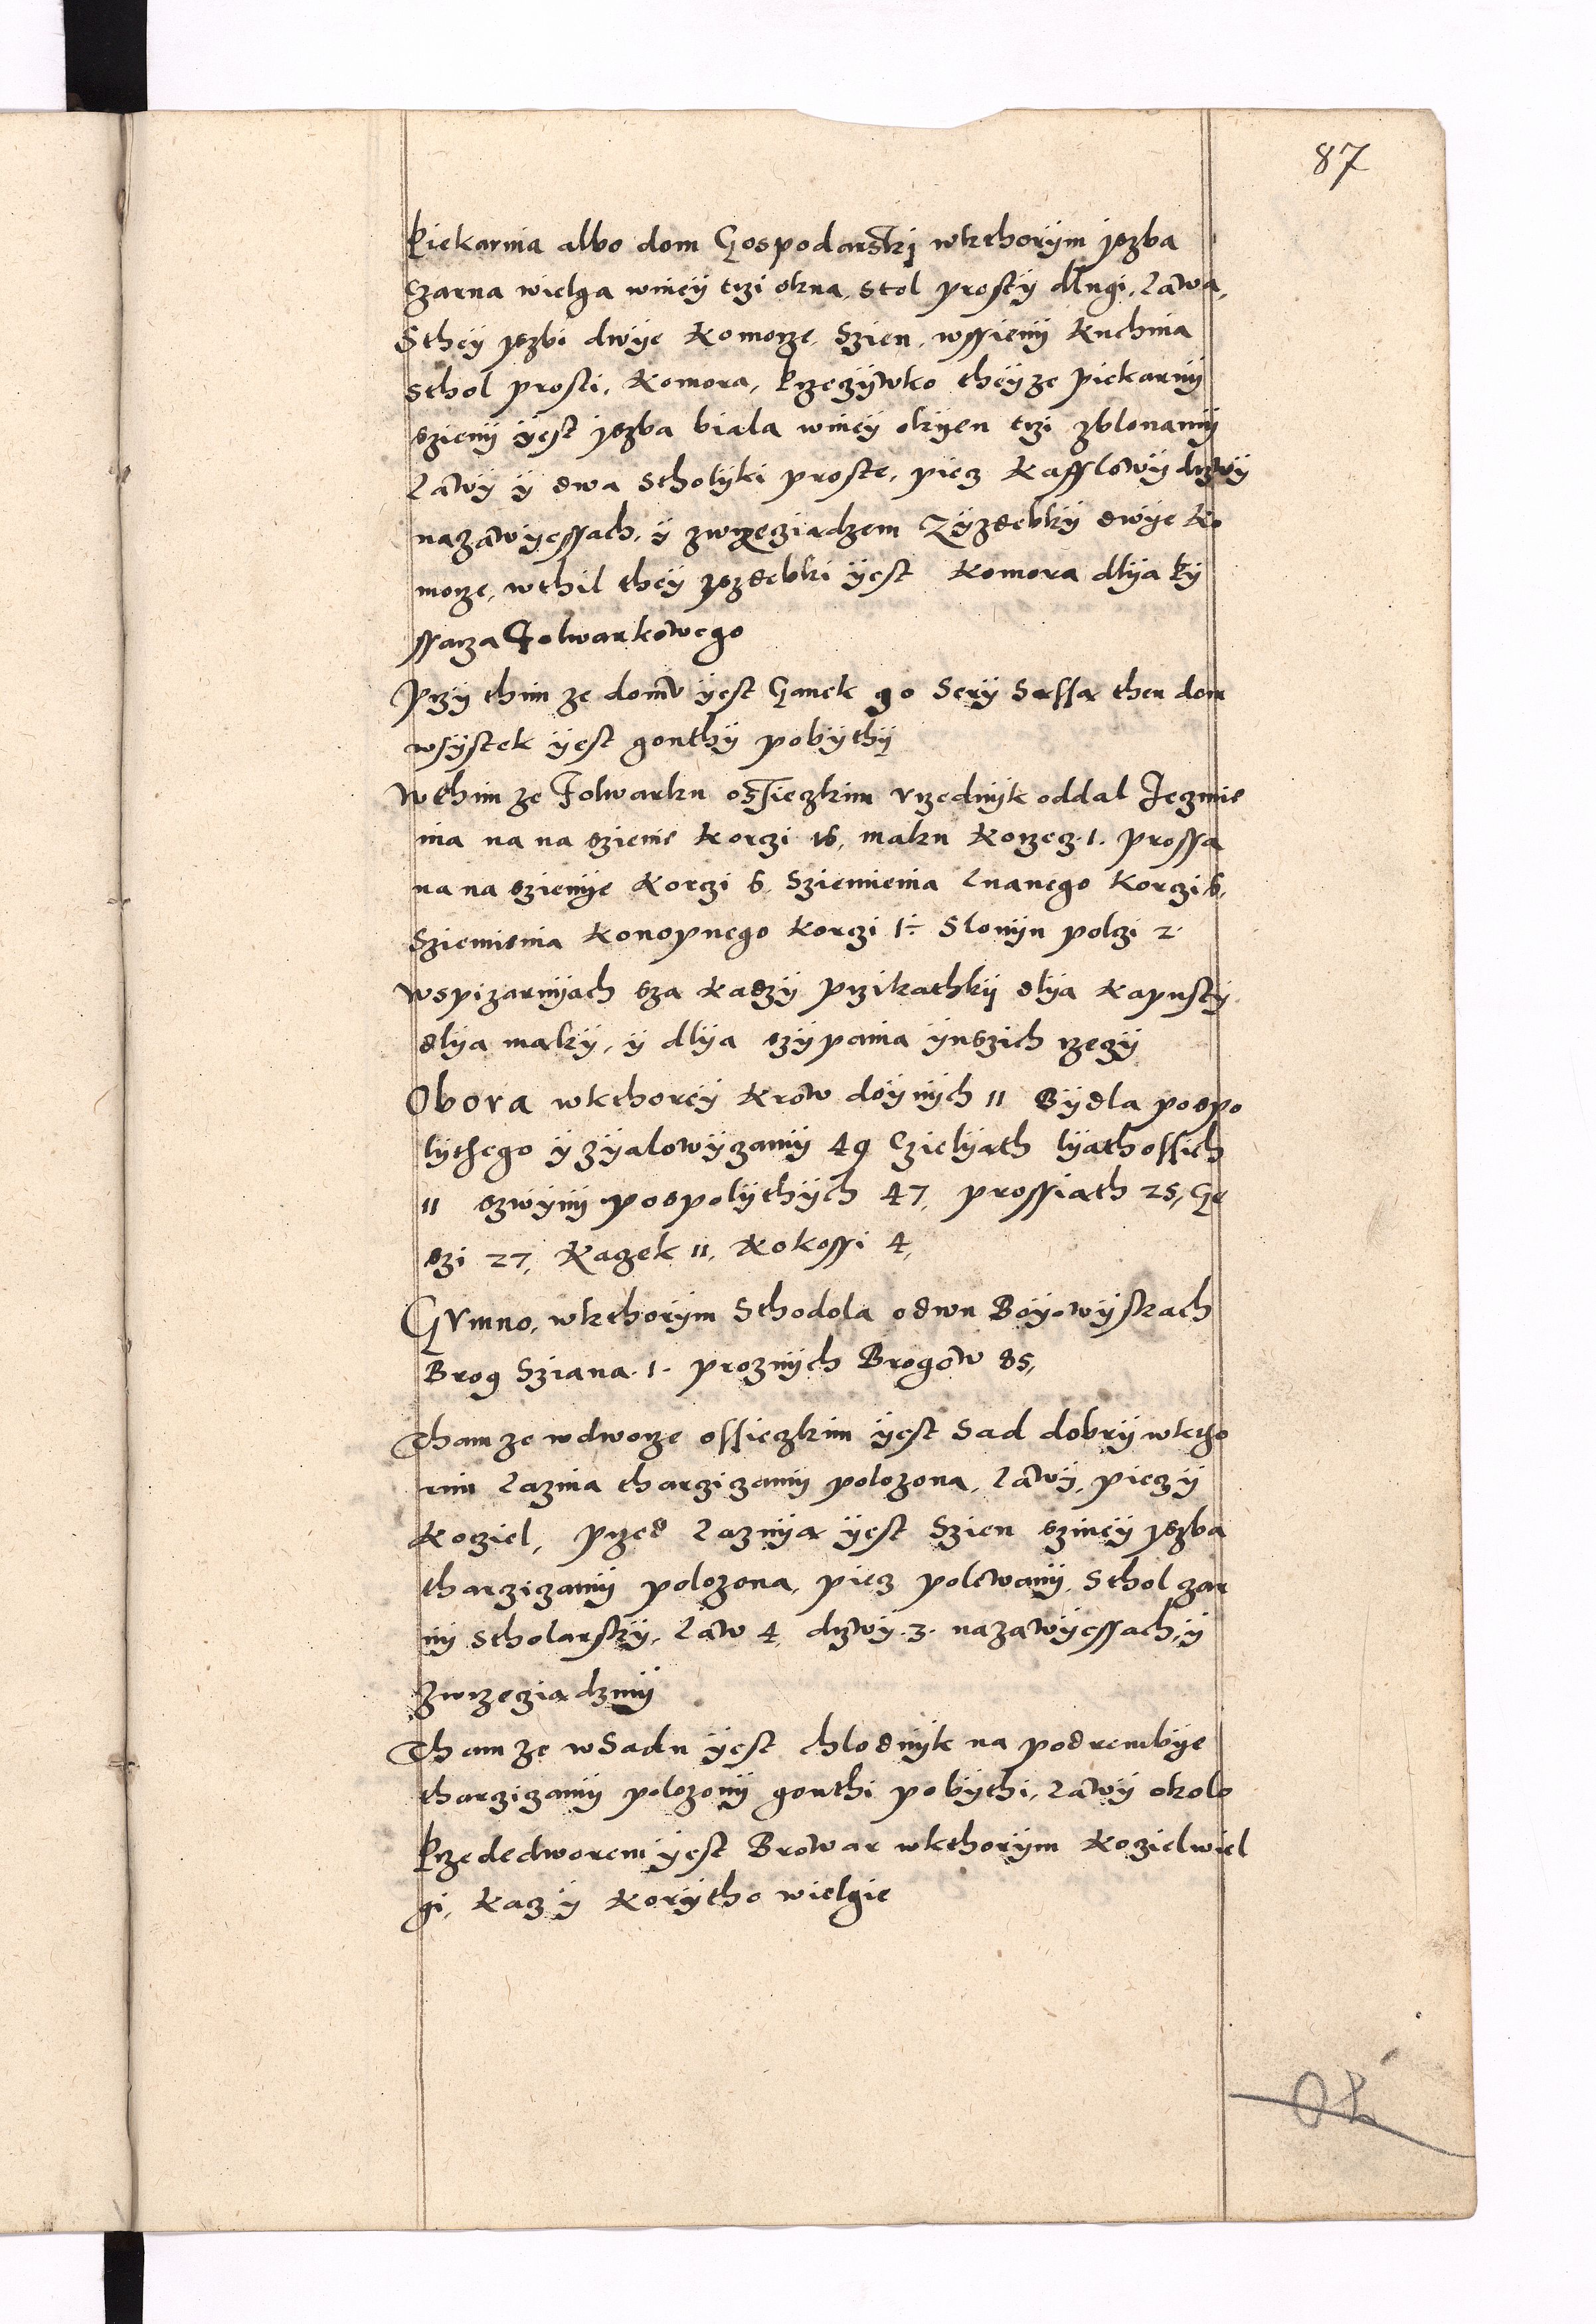 87
Piekarnia albo dom Gospodarski wkthorÿm jszba
Czarna wielga winey trzi okna, Stol prosty dlugi, Lawa,
Sthey jszbi dwÿe Komorze, Szien, wssienÿ Kuchnia
Sthol prosti, Komora, Przeczÿwko theÿze Piekarnÿ
szienÿ ÿest jszba biala winey okÿen trzi zblonamÿ
Lawÿ ÿ dwa Stholÿki proste, piecz Kafflowÿ drzwÿ
nazawÿessach, ÿ zwrzeciadzem Zÿzdebkÿ dwÿe Ko
morze, wthil theÿ jszdebki ÿest Komora dlÿa Pÿ
ssarza Folwarkowego
Przÿ thim ze domu ÿest Ganek go Serÿ Sussa then dom
wsÿstek ÿest gonthÿ pobÿthÿ
Wthim ze Folwarku ossieczkim Vrzednÿk oddal Jeczmie
nia na na szienie Korczi 16, maku Korzecz 1. prossa
na na szienÿe Korczi 6, Sziemienia Lnanego Korczi 6,
Sziemienia Konopnego Korczi 1÷ Slonÿn polczi 2
Wspizarnÿach sza Kadzÿ przikathkÿ dlÿa Kapustÿ
dlÿa makÿ, ÿ dlÿa szÿpania ÿnszich rzeczÿ
Obora wkthorey Krow doÿnÿch 11 Bÿdla pospo
lÿthego ÿ zÿalowÿczamÿ 49 Czielÿath lÿathossich
11 szwÿnÿ pospolÿthÿch 47, prossiath 25, Ge
szi 27, Kaczek 11, Kokossi 4,
GVmno, wkthorÿm Sthodola odwu Boÿowÿskach
Brog Sziana 1. proznÿch Brogow 85,
Tham ze wdworze ossieczkim ÿest Sad dobrÿ wktho
rim Laznia tharczizamÿ polozona, Lawÿ, piecz ÿ
Kocziel, przed Laznÿa ÿest Szien szinei jszba
tharczizamÿ polozona, piecz polewanÿ, Sthol czar
nÿ Stholarskÿ, Law 4, drzwÿ 3. nazawÿessach, ÿ
Zwrzecziadzmÿ
Tham ze wSadu ÿest chlodnÿk na podrembÿe
tharczizamÿ polozonÿ gonthi pobÿthi, Lawÿ okolo
Przededworem ÿest Browar wkthorÿm Kozielwiel
gi, Kacz ÿ Korÿtho wielgie